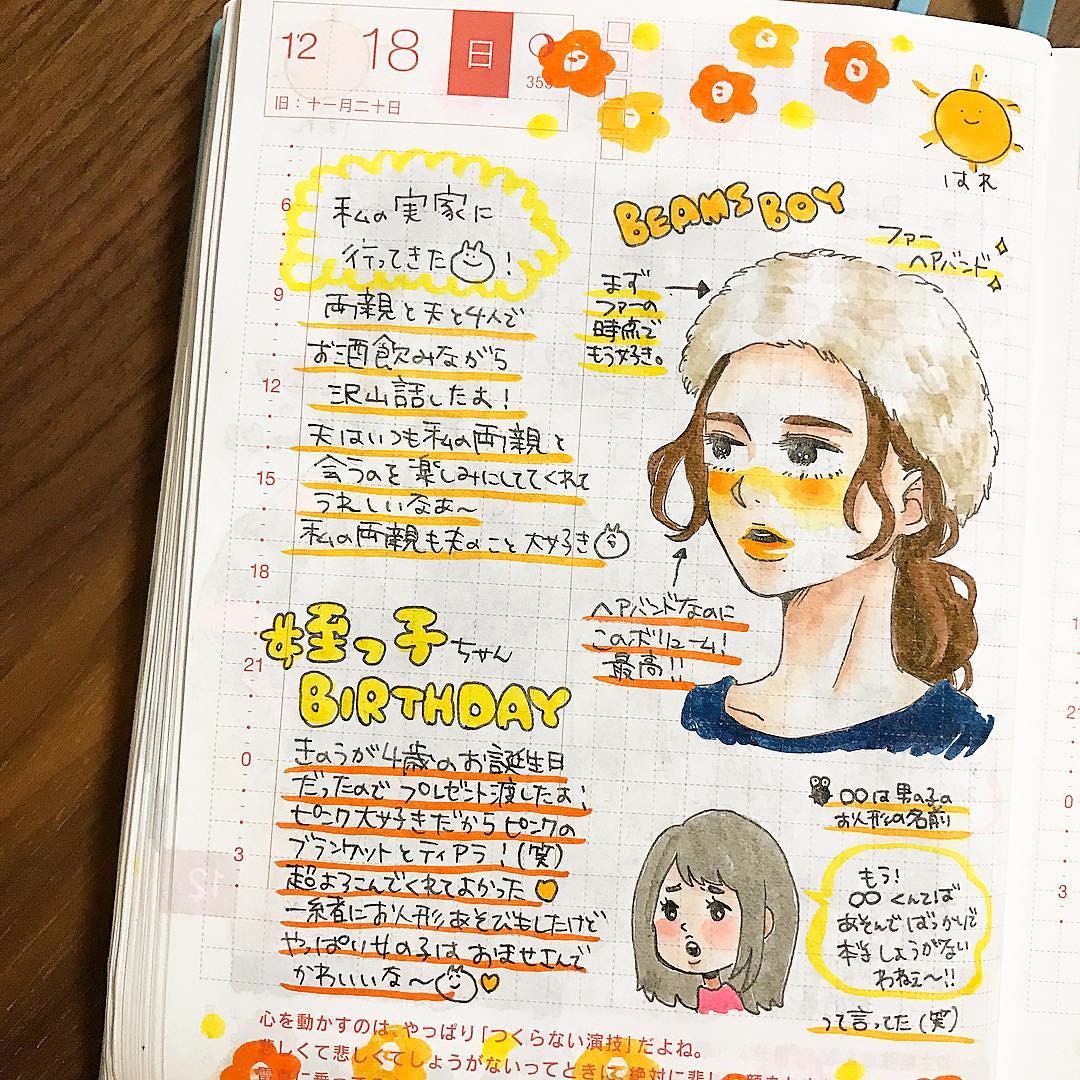 12 18 日
359
旧：十一月二十日
はれ
6
9
12
15
18
21
0
3
私の実家に
行ってきた！
両親と夫と4人で
お酒飲みながら
沢山話したよ！
夫はいつも私の両親と
会うのを楽しみにしててくれて
うれしいなあ〜
私の両親も夫のこと大好き
BEAMS BOY
ファー
ヘアバンド
まず
ファーの
時点で
もう好き。
ヘアバンドなのに
このボリューム！
最高！！
#姪っ子ちゃん
BIRTHDAY
きのうが4歳のお誕生日
だったのでプレゼント渡したよ！
ピンク大好きだからピンクの
ブランケットとティアラ！(笑)
超よろこんでくれてよかった
一緒にお人形あそびもしたけど
やっぱり女の子はおませさんで
かわいいな〜
〇〇は男の子の
お人形の名前
もう！
〇〇くんてば
あそんでばっかりで
本当しょうがない
わねぇ〜!!
って言ってた(笑)
12
心を動かすのは、やっぱり「つくらない演技」だよね。
悲しくて悲しくてしょうがないってときに、絶対に悲しい